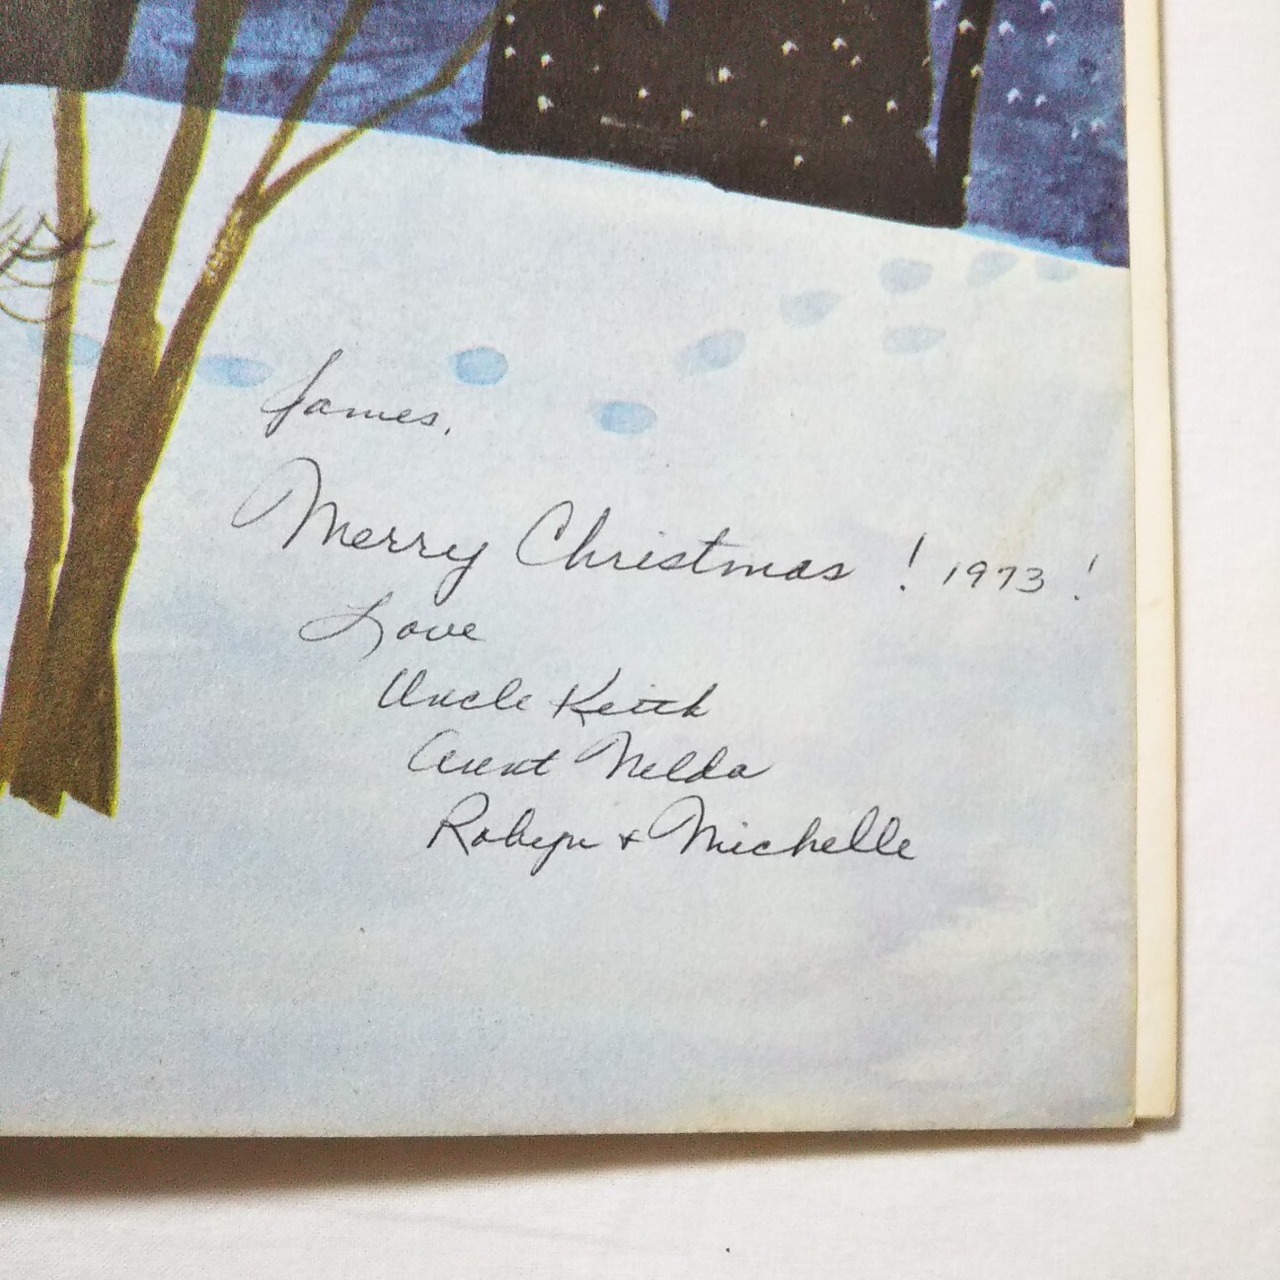 James,
Merry Christmas ! 1973 !
Love
Uncle Keith
Aunt Nelda
Robyn + Michelle